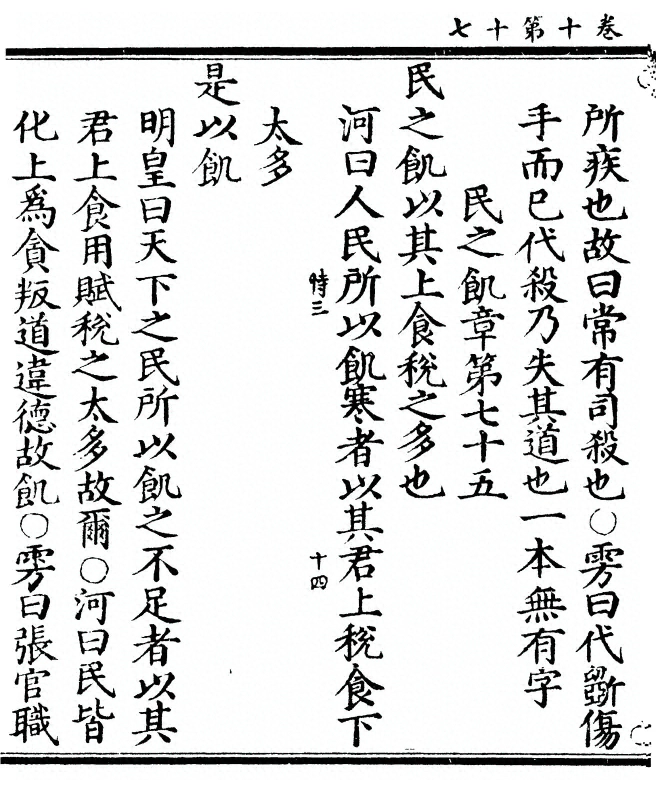 卷十第十七
所疾也故曰常有司殺也○雱曰代斲傷
手而已代殺乃失其道也一本無有字
民之飢章第七十五
民之飢以其上食稅之多也
河曰人民所以飢寒者以其君上稅食下
恃三
十四
太多
是以飢
明皇曰天下之民所以飢之不足者以其
君上食用賦稅之太多故爾○河曰民皆
化上爲貪叛道違德故飢○雱曰張官職